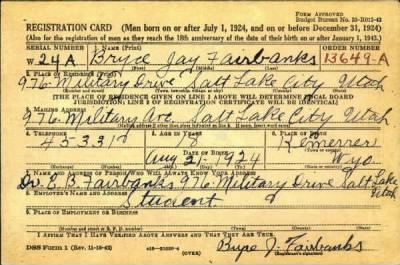 FORM APPROVED
Budget Bureau No. 33-R012-43
REGISTRATION CARD (Men born on or after July 1, 1924, and on or before December 31, 1924)
(Also for the registration of men as they reach the 18th anniversary of the date of their birth on or after January 1, 1943.)
SERIAL NUMBER 1. NAME (Print) ORDER NUMBER
W 24A Bryce Jay Fairbanks 13649-A
2. PLACE OF RESIDENCE (Print)
976 Military Drive Salt Lake City Utah
(THE PLACE OF RESIDENCE GIVEN ON LINE 2 ABOVE WILL DETERMINE LOCAL BOARD
JURISDICTION; LINE 2 OF REGISTRATION CERTIFICATE WILL BE IDENTICAL)
3. MAILING ADDRESS
976 Military Ave. Salt Lake City Utah
4. TELEPHONE 5. AGE IN YEARS 6. PLACE OF BIRTH
18 Kemerrer
DATE OF BIRTH
Aug 21 - 1924 Wyo
7. NAME AND ADDRESS OF PERSON WHO WILL ALWAYS KNOW YOUR ADDRESS
Dr. E. B. Fairbanks 976 Military Drive Salt Lake
Utah
8. EMPLOYER'S NAME AND ADDRESS
Student
9. PLACE OF EMPLOYMENT OR BUSINESS
I AFFIRM THAT I HAVE VERIFIED ABOVE ANSWERS AND THAT THEY ARE TRUE.
DSS Form 1 (OVER)
Bryce J. Fairbanks